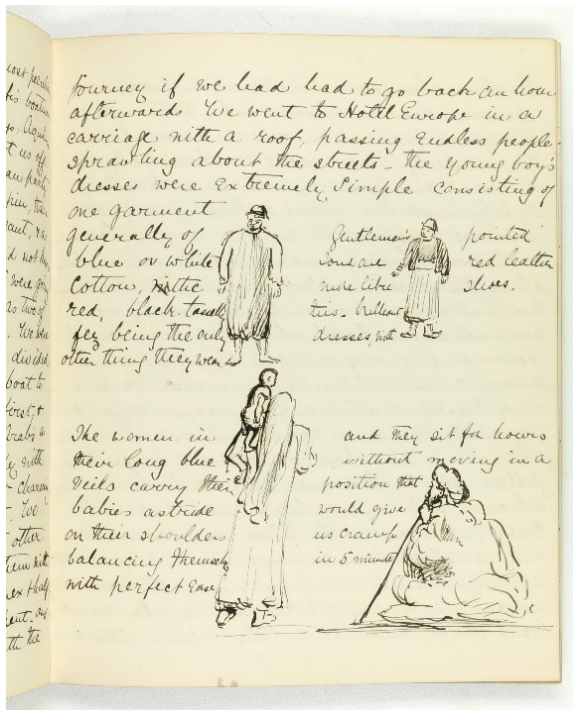 Journey if we had had to go back an hour
afterwards We went to Hotel Europe in a
carriage with a roof, passing Endless people
sprawling about the streets - the young boy's
dresses were Extremely Simple consisting of
one garment
generally of
blue or white
Cotton, with
red, black-
fez being the only
other thing they wear
Gentlemen's
are
more like
this - brilliant
dresses with
pointed
red leather
shoes.
The women in
their long blue
veils carry their
babies astride
on their shoulders
balancing themselves
with perfect Ease
and they sit for hours
without moving in a
position that
would give
us cramp
in 5 minutes